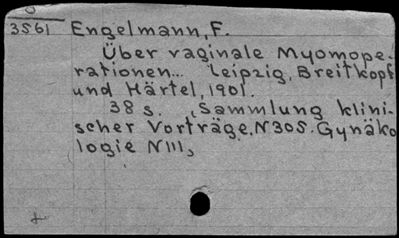 3561 Engelmann, F.
Über vaginale Myomope-
rationen... Leipzig, Breitkopf
und Härtel, 1901.
38 s. (Sammlung klini-
scher Vorträge. N305. Gynäko
logie N111)